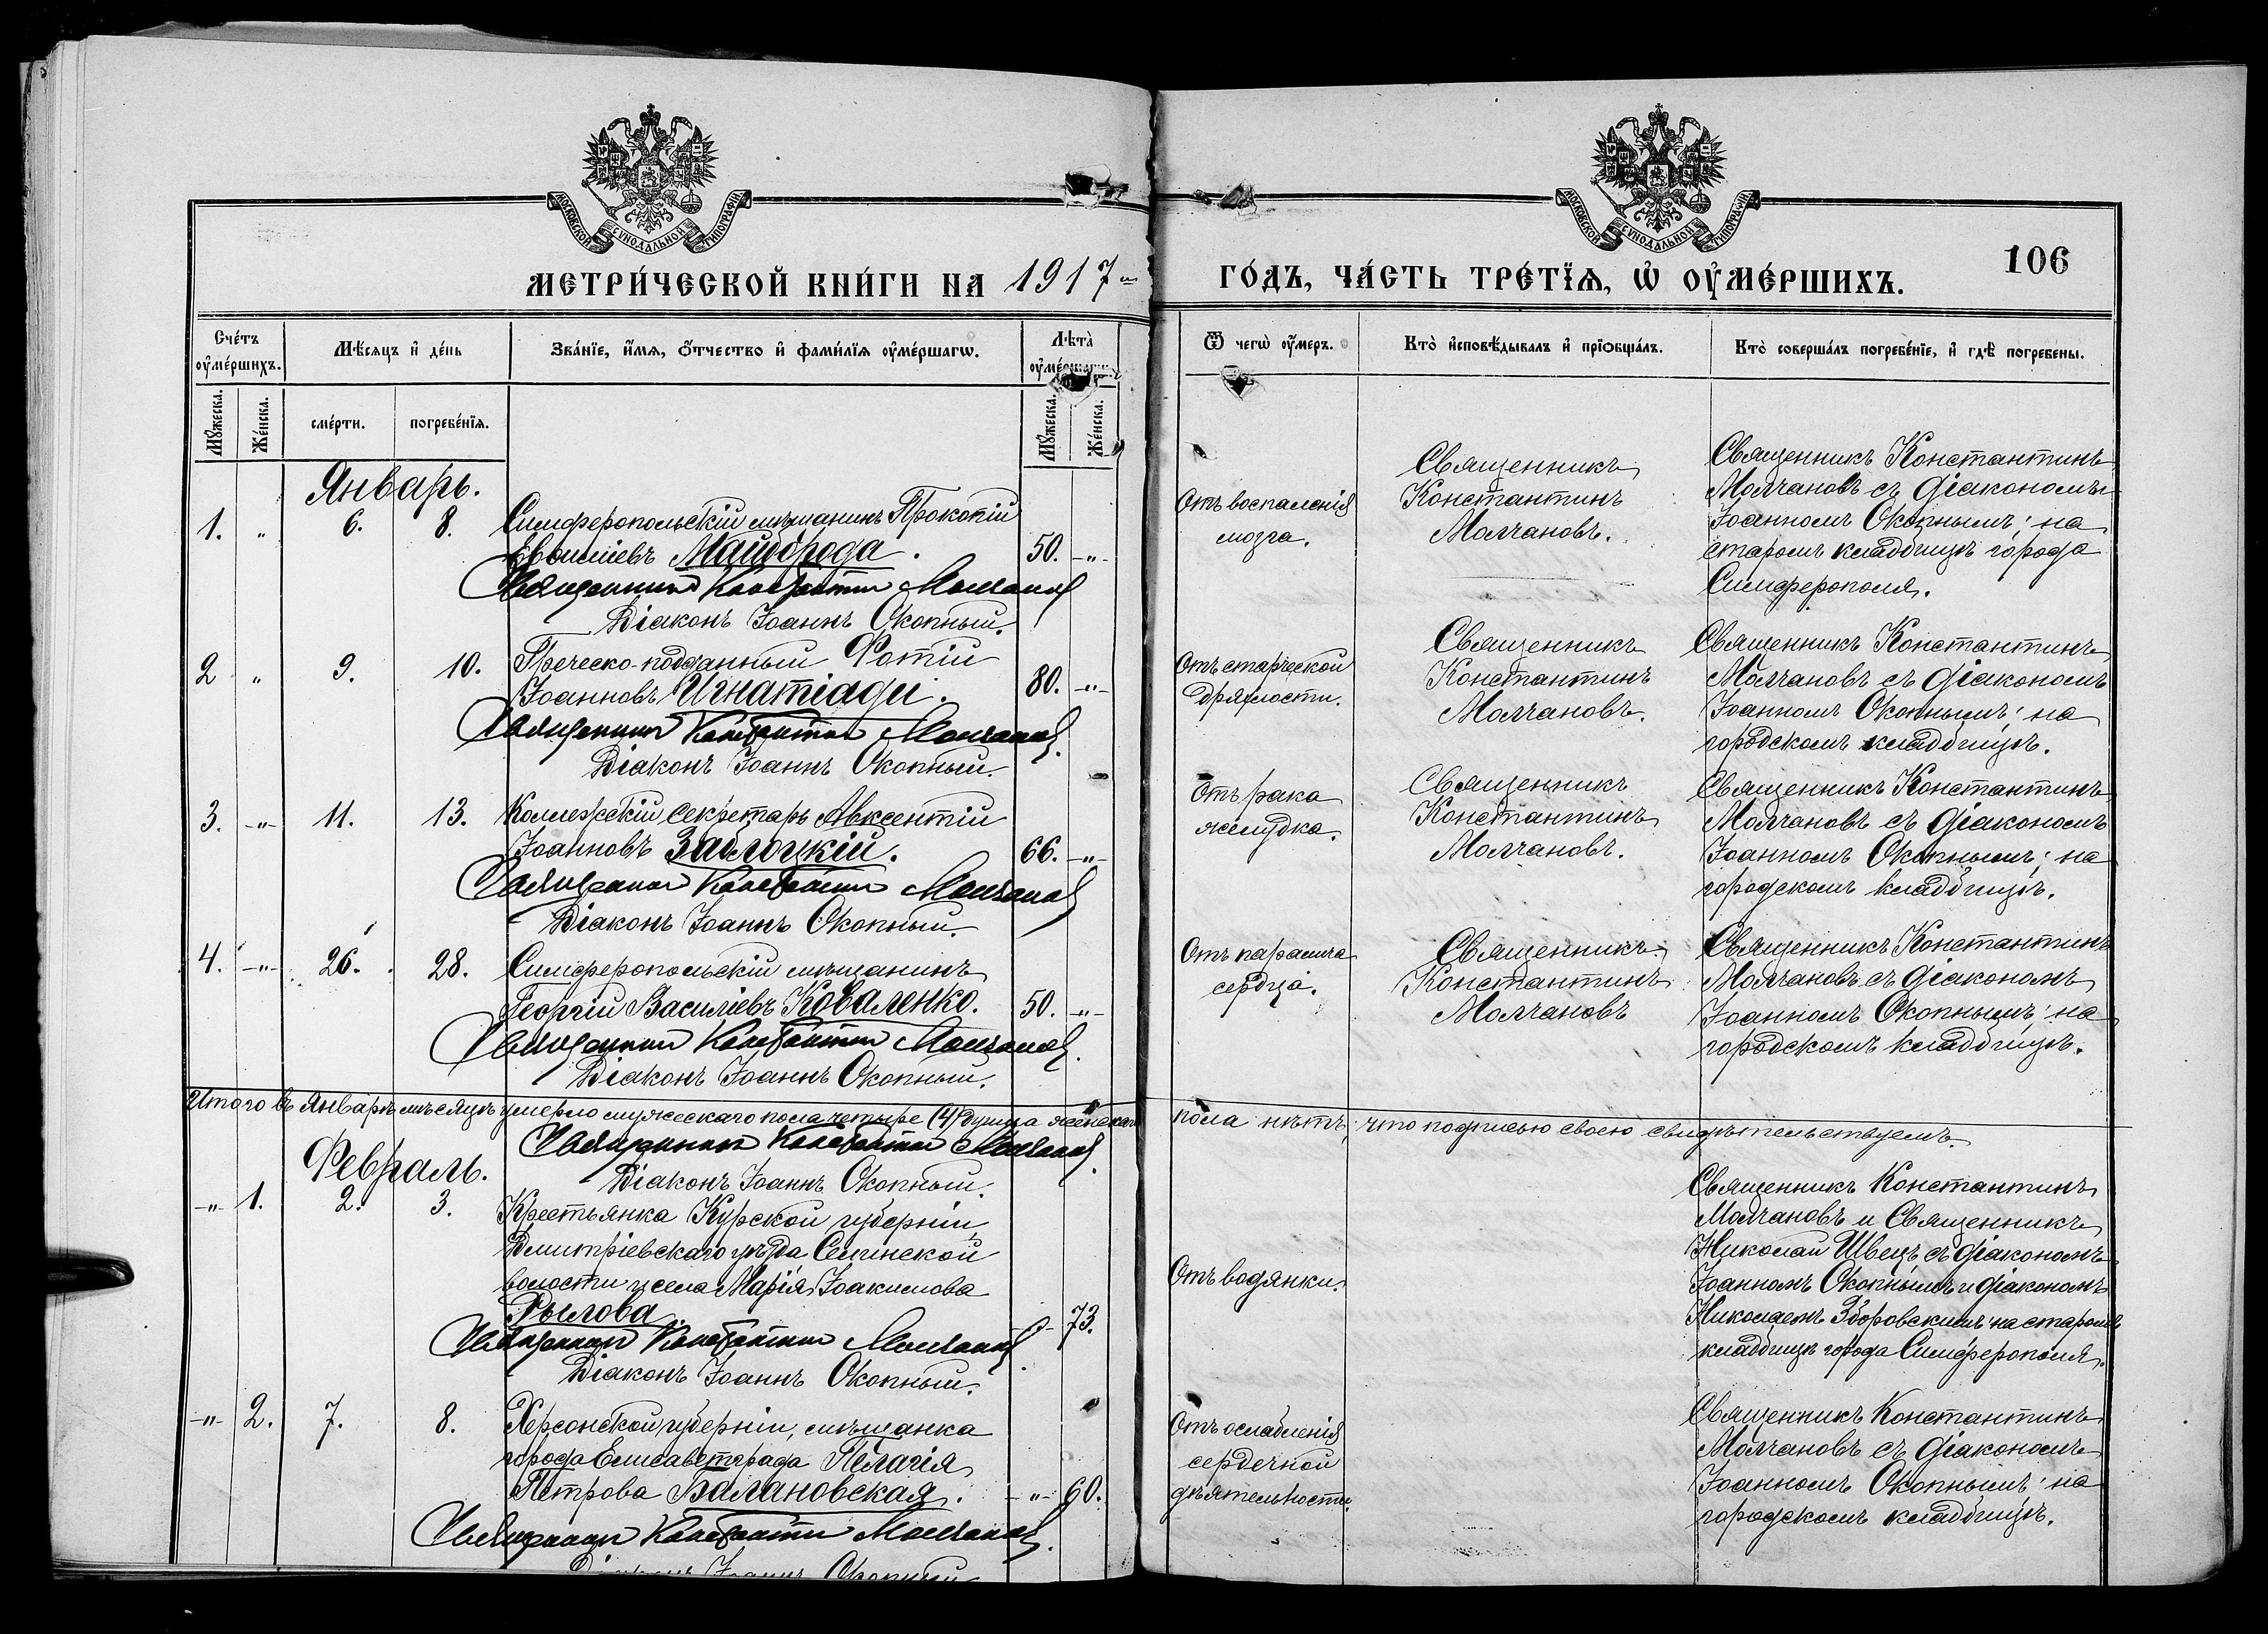 МОСКОВСКОЙ СѴНОДАЛЬНОЙ ТИПОГРАФІИ
МОСКОВСКОЙ СѴНОДАЛЬНОЙ ТИПОГРАФІИ
106
МЕТРИ́ЧЕСКОЙ КНИ́ГИ НА 1917
ГО́ДЪ, ЧА́СТЬ ТРЕ́ТЇѦ, Ѡ҆ ОУ҆МЕ́РШИХЪ.
Сче́тъ оу҆ме́ршихъ.
Мѣ́сѧцъ и҆ де́нь
Зва́нїе, и҆́мѧ, ѻ҆́тчество и҆ фами́лїѧ оу҆ме́ршагѡ.
Лѣ́та̀
Ѿ чегѡ̀ оу҆́меръ.
Кто̀ и҆сповѣ́дывалъ и҆ прїѡбща́лъ.
Кто̀ соверша́лъ погребе́нїе, и҆ гдѣ̀ погребены.
Мꙋ́жеска.
Же́нска.
сме́рти.
погребе́нїѧ.
Мꙋ́жеска.
Же́нска.
Январь.
1. " 6. 8.
Симферопольскій мѣщанинъ Прокопій
Майборода.
50. -"-
Священникъ Константинъ Молчановъ
Діаконъ Іоаннъ Окопный.
Отъ воспаленія
мозга.
Священникъ
Константинъ
Молчановъ.
Священникъ Константинъ
Молчановъ съ діакономъ
Іоанномъ Окопнымъ; на
старомъ кладбищѣ города
Симферополя.
2 " 9. 10.
Греческо-подданный Фотій
Іоанновъ Игнатіади.
80. -"-
Священникъ Константинъ Молчановъ.
Діаконъ Іоаннъ Окопный.
Отъ старческой
дряхлости.
Священникъ
Константинъ
Молчановъ.
Священникъ Константинъ
Молчановъ съ діакономъ
Іоанномъ Окопнымъ; на
городскомъ кладбищѣ.
3. -"- 11. 13.
Коллежскій секретарь Авксентій
Іоанновъ Заблоцкій.
66. -"-
Священникъ Константинъ Молчановъ
Діаконъ Іоаннъ Окопный.
Отъ рака
желудка.
Священникъ
Константинъ
Молчановъ.
Священникъ Константинъ
Молчановъ съ діакономъ
Іоанномъ Окопнымъ; на
городскомъ кладбищѣ.
4. -"- 26. 28.
Симферопольскій мѣщанинъ
Георгій Василіевъ Коваленко.
50. -"-
Священникъ Константинъ Молчановъ.
Діаконъ Іоаннъ Окопный.
Отъ паралича
сердца.
Священникъ
Константинъ
Молчановъ
Священникъ Константинъ
Молчановъ съ діакономъ
Іоанномъ Окопнымъ; на
городскомъ кладбищѣ.
Итого въ Январѣ мѣсяцѣ умерло мужескаго пола четыре (4) душа женскаго
пола нѣтъ; что подписью своею свидѣтельствуемъ.
Священникъ Константинъ Молчановъ.
Діаконъ Іоаннъ Окопный.
Февраль.
-"- 1. 2. 3.
Крестьянка Курской губерніи,
Дмитріевскаго уѣзда
волости и села Марія Іоакимова
Рылова.
-"- 73.
Священникъ Константинъ Молчановъ.
Діаконъ Іоаннъ Окопный.
Отъ водянки.
Священникъ Константинъ
Молчановъ и Священникъ
Николай Швецъ съ діакономъ
Іоанномъ Окопнымъ и діакономъ
Николаемъ Зборовскимъ на старомъ
кладбищѣ города Симферополя.
-"- 2. 7. 8.
Херсонской губерніи, мѣщанка
города Елисаветграда Пелагія
Петрова Балановская.
-"- 60.
Священникъ Константинъ Молчановъ.
Діаконъ Іоаннъ Окопный
Отъ ослабленія
сердечной
дѣятельности.
Священникъ Константинъ
Молчановъ съ діакономъ
Іоанномъ Окопнымъ; на
городскомъ кладбищѣ.